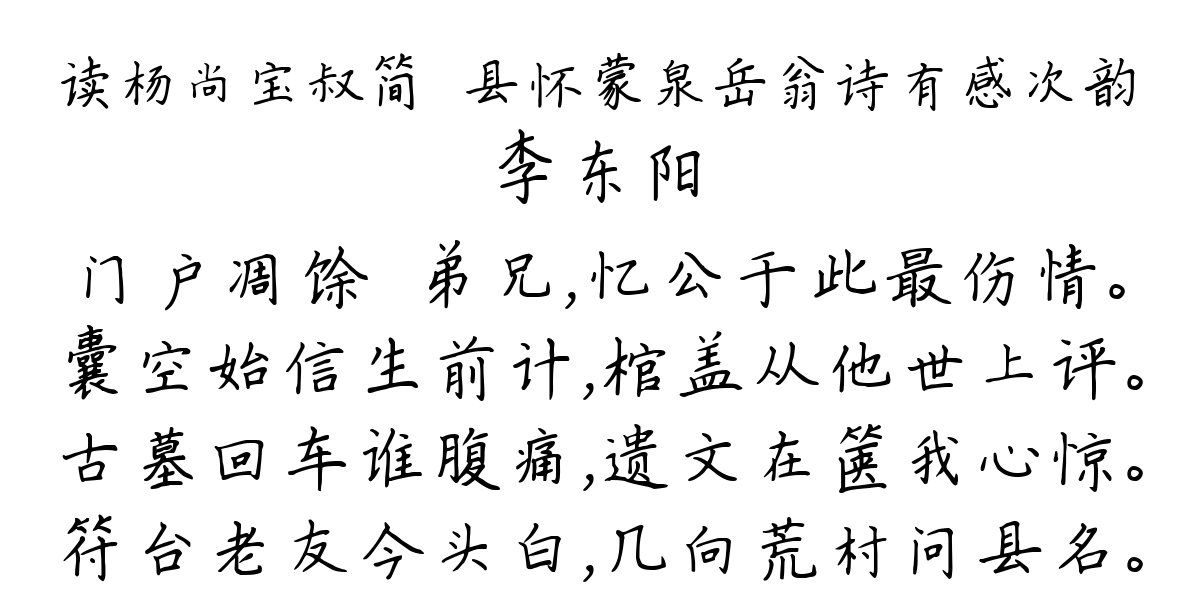 读杨尚宝叔简 县怀蒙泉岳翁诗有感次韵
李东阳
门户凋馀 弟兄,忆公于此最伤情。
囊空始信生前计,棺盖从他世上评。
古墓回车谁腹痛,遗文在箧我心惊。
符台老友今头白,几向荒村问县名。